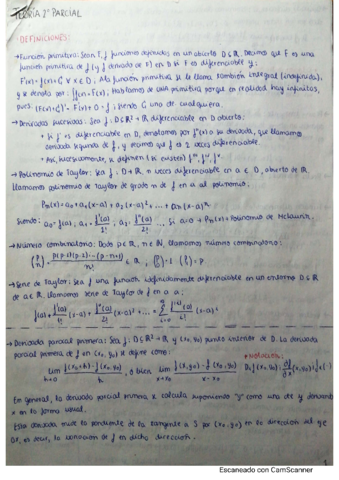 TEORÍA 2º PARCIAL
·DEFINICIONES:
→Función primitiva: Sean F, f funciones definidas en un abierto D⊆R. Decimos que F es una
función primitiva de f (y f derivada de F) en D si F es diferenciable y:
F'(x)=f(x) ∀x∈D. A la función primitiva se le llama también integral (indefinida),
y se denota por: ∫f(x)=F(x). Hablamos de una primitiva porque en realidad hay infinitas,
pues (F(x)+C)'=F'(x)+0=f, siendo C una cte cualquiera.
→Derivadas sucesivas: Sea f: D⊆R → R diferenciable en D abierto.
• Si f' es diferenciable en D, denotamos por f''(x) su derivada, que llamamos
derivada segunda de f, y diremos que f es 2 veces diferenciable.
• Así, sucesivamente, se definen (si existen) f''', f
→Polinomio de Taylor: Sea f: D→R, n veces diferenciable en a∈D, abierto de R.
Llamamos polinomio de Taylor de grado n de f en a al polinomio:
Pn(x)=a0+a1(x-a)+a2(x-a)²+...+an(x-a)ⁿ
Siendo: a0=f(a), a1=f'(a)/1!, a2=f''(a)/2!... Si a=0→Pn(x)=Polinomio de McLaurin.
→Número combinatorio: Dado p∈R, n∈N, llamamos número combinatorio:
(p n)=p(p-1)(p-2)...(p-n+1)/n! ∈R, (p 0)=1, (p 1)=p
→Serie de Taylor: Sea f una función indefinidamente diferenciable en un entorno D⊆R
de a∈R, llamamos serie de Taylor de f en a a:
f(a)+f'(a)/1!(x-a)+f''(a)/2!(x-a)²+...=∑ f(a)/i!(x-a)
→Derivada parcial primera: Sea f: D⊆R²→R y (x0,y0) punto interior de D. La derivada
parcial primera de f en (x0,y0) se define como:
*NOTACIÓN:
lim h→0 f(x0+h,y0)-f(x0,y0)/h, o bien lim x→x0 f(x,y0)-f(x0,y0)/x-x0
En general, la derivada parcial primera se calcula suponiendo "y" como una cte y derivando
x en la forma usual.
Esta derivada mide la pendiente de la tangente a f por (x0,y0) en la dirección del eje
OX, es decir, la variación de f en dicha dirección.
1
Escaneado con CamScanner